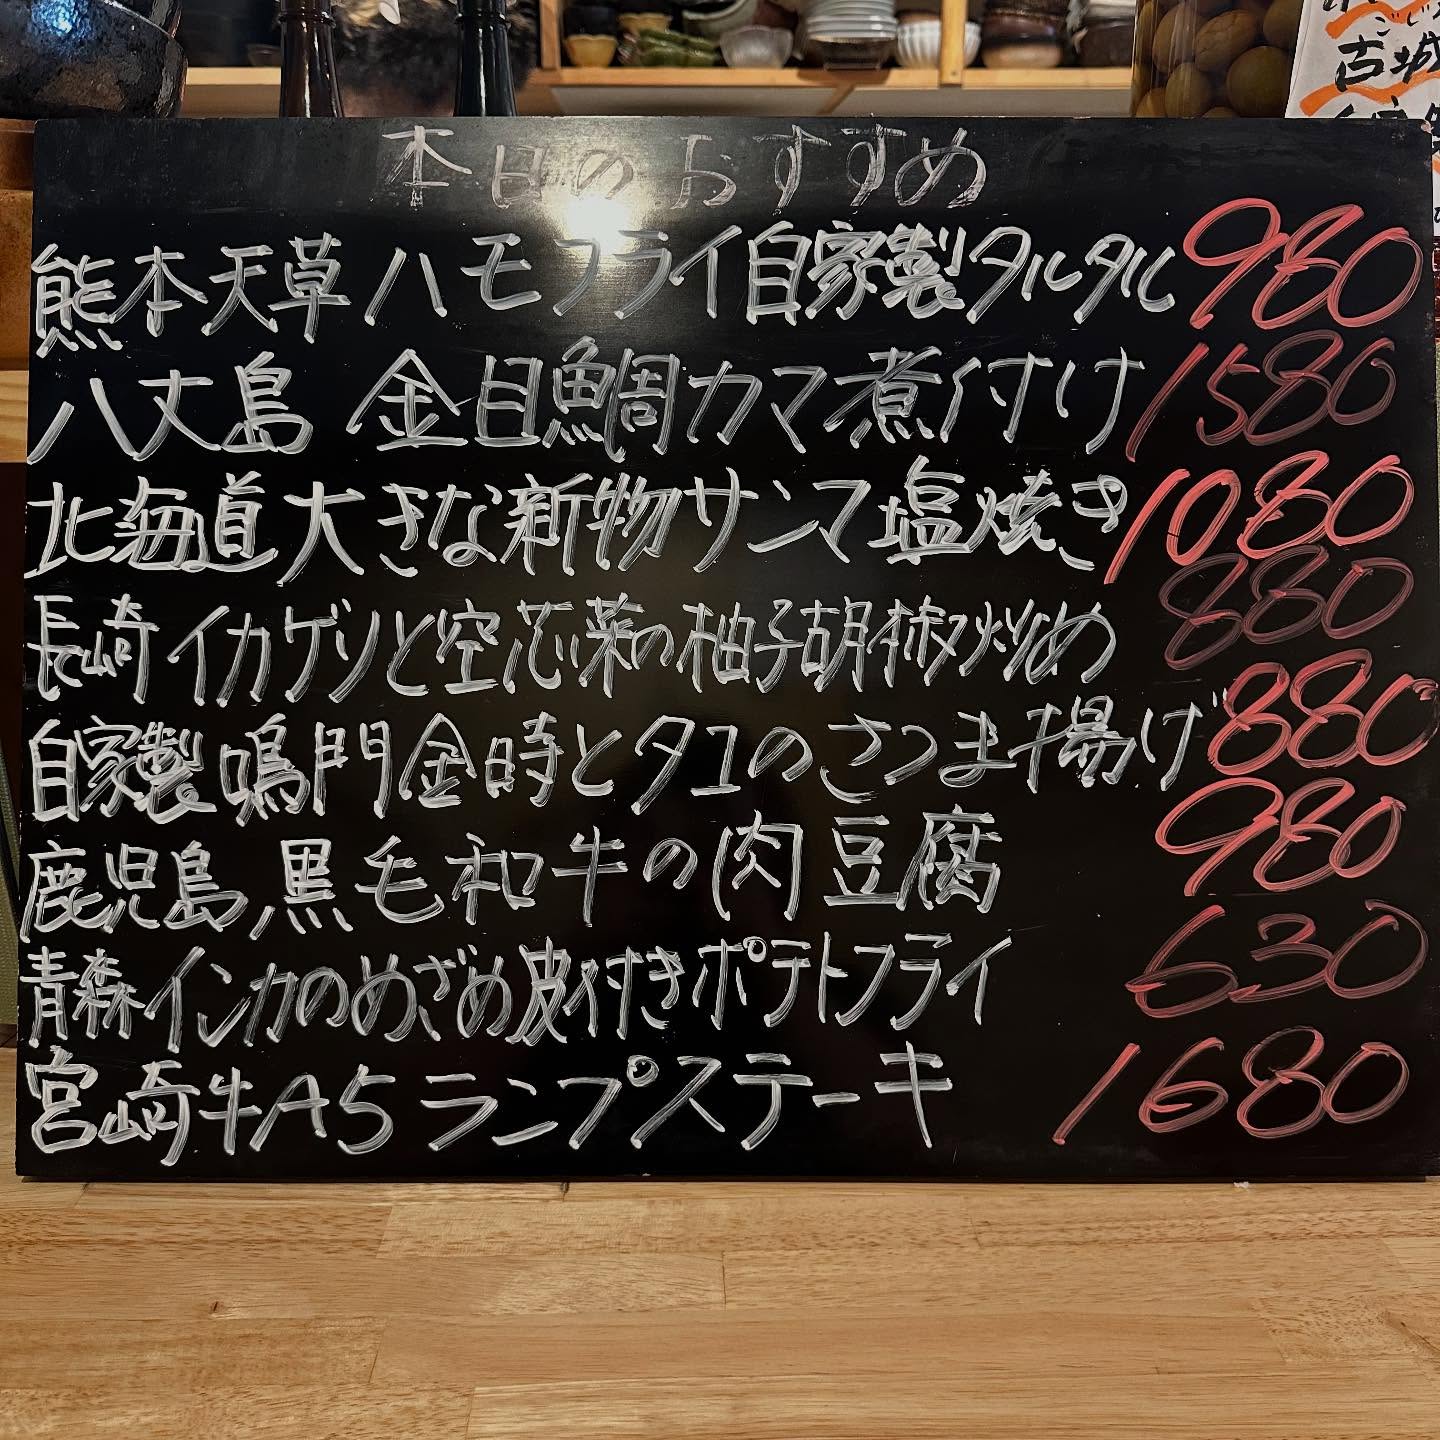 本日のおすすめ
熊本天草ハモフライ自家製タルタル 980
八丈島 金目鯛カマ煮付け 1580
北海道大きな新物サンマ塩焼き 1080
長崎イカゲソと空芯菜の柚子胡椒炒め 880
自家製鳴門金時とタコのさつま揚げ 880
鹿児島黒毛和牛の肉豆腐 980
青森インカのめざめ皮付きポテトフライ 630
宮崎牛A5ランプステーキ 1680
古城